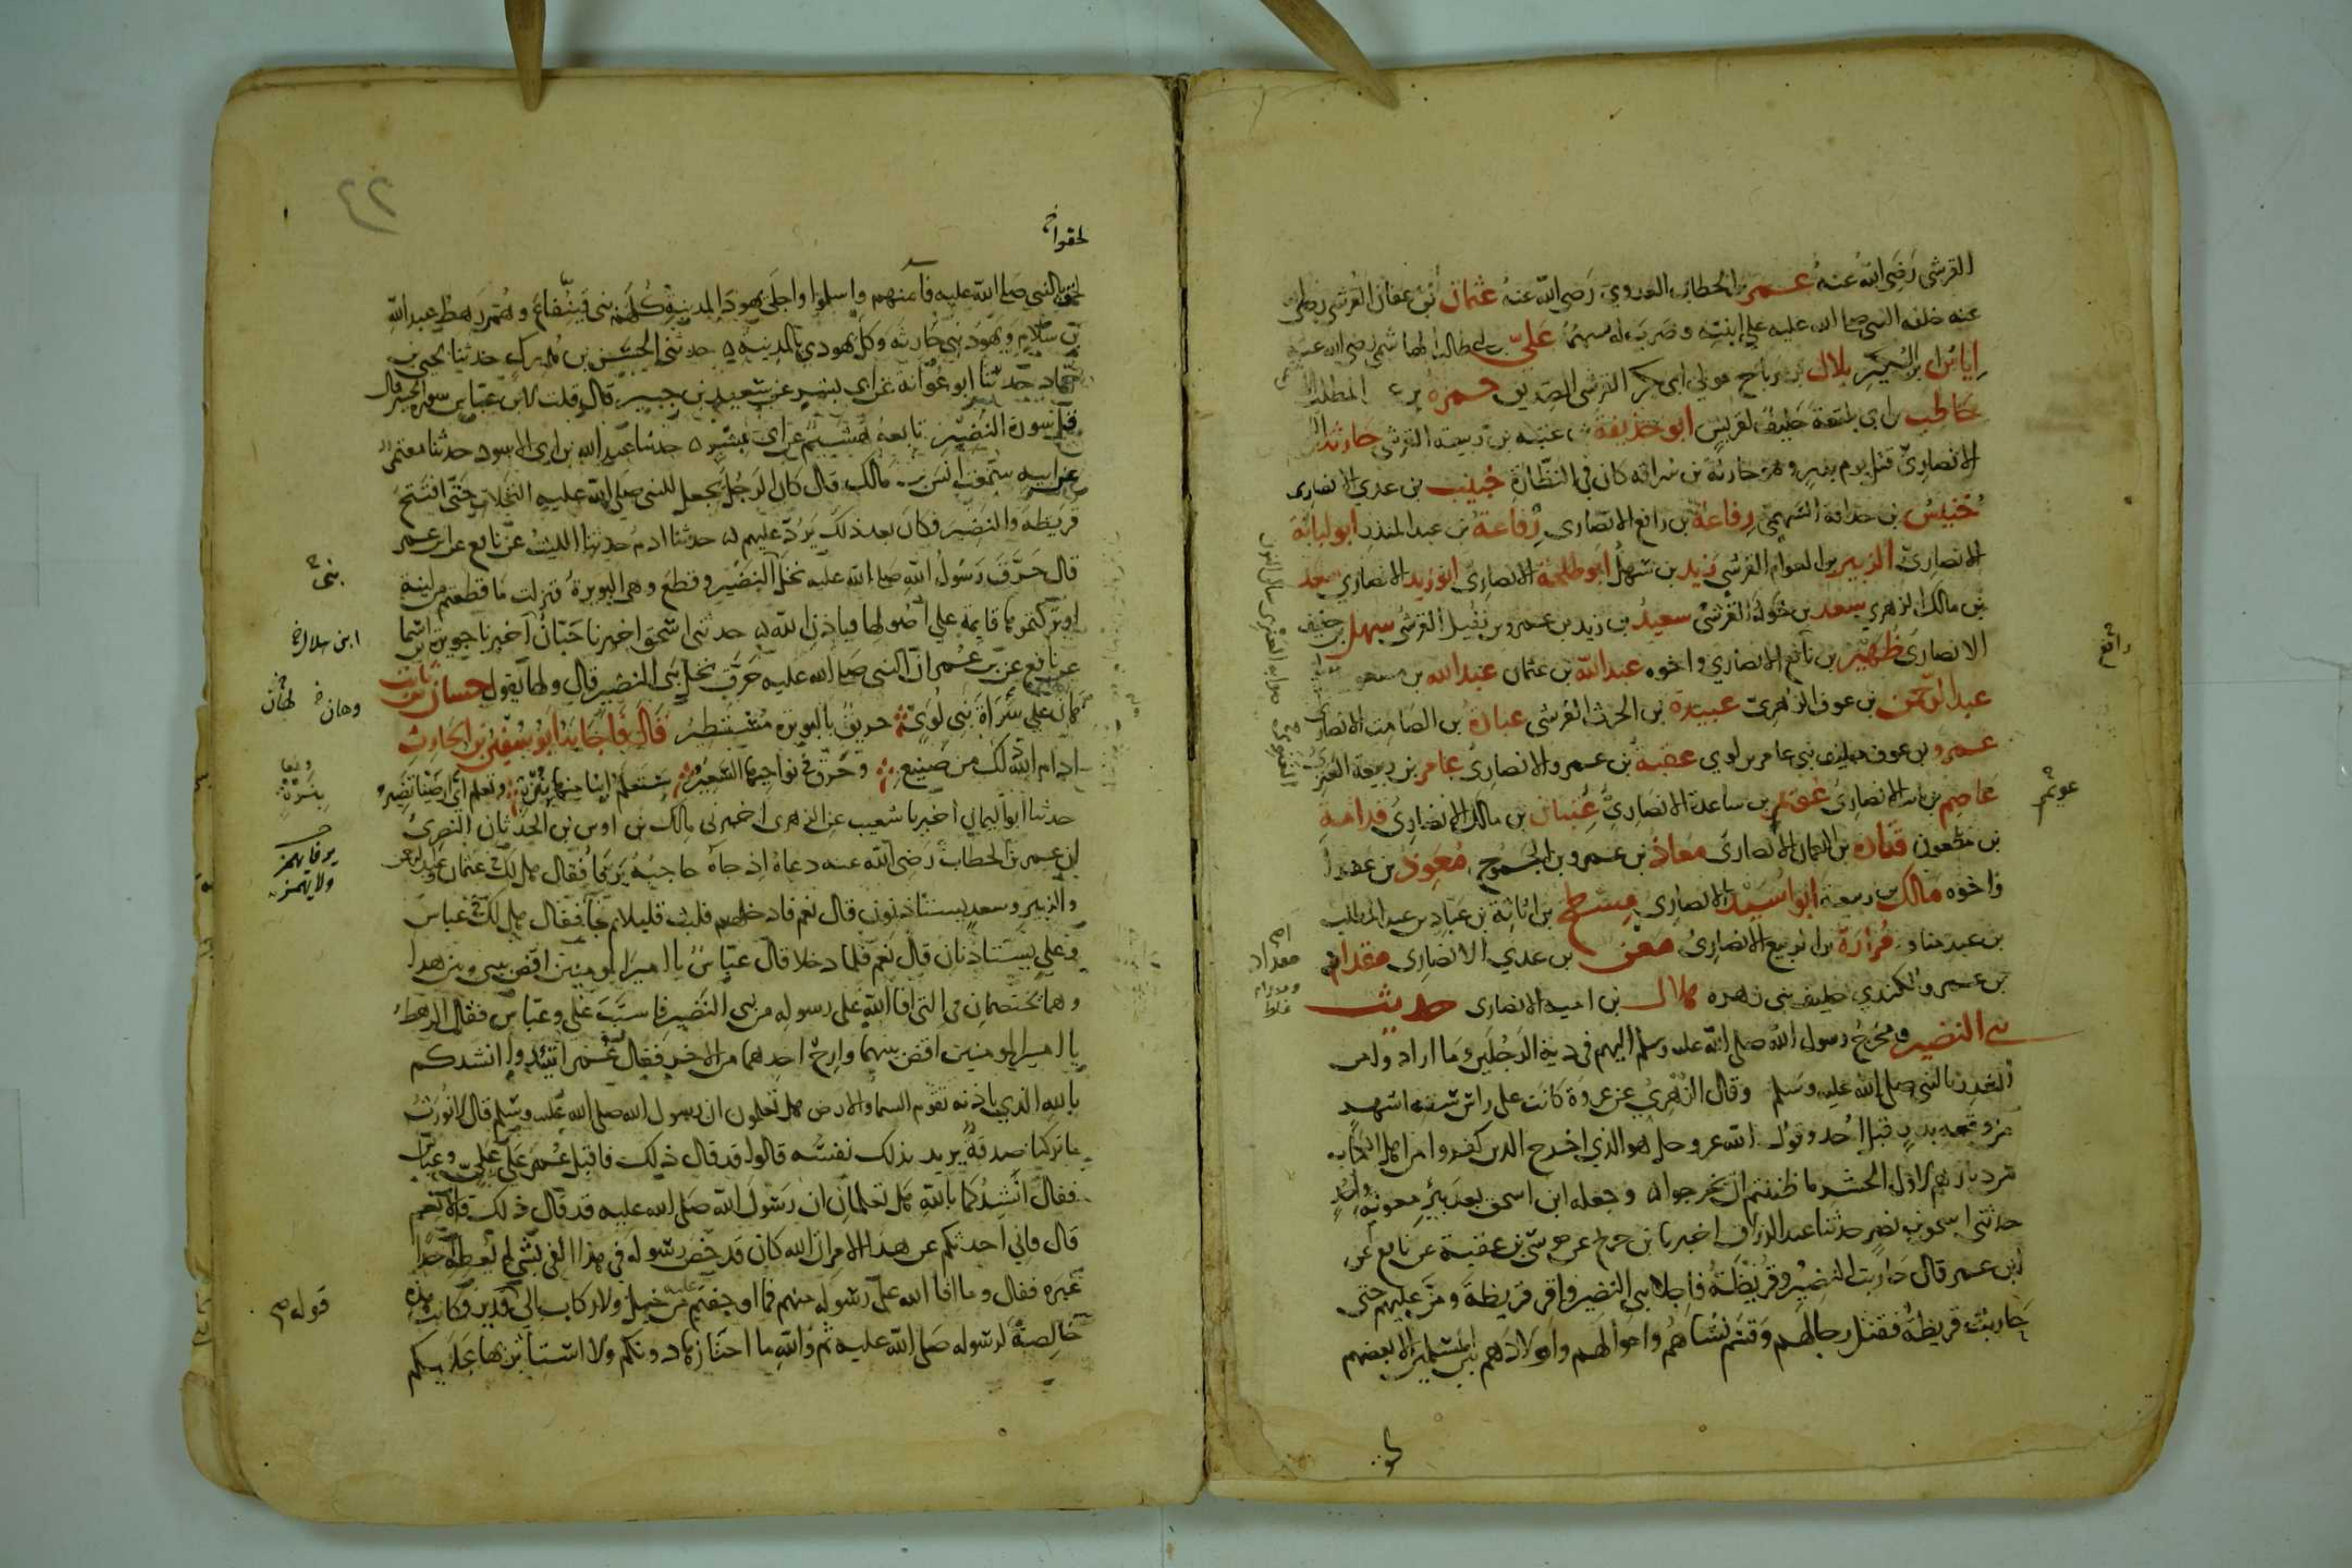 القرشي رَضي الله عنه عمر بن الخطاب العدوي رَضي الله عنه عثمان بن عفان القرشي
خلفه النبي صلى الله عليه على ابنته وضرب له بسهمه علي بن ابي طالب الهاشمي رضي الله عنه
إياس بن البكير بلال بن رباح مولى ابي بكر القرشي الصديق حمزة بن عبد المطلب
حاطب بن ابي بلتعة حليف لقريش ابو حذيفة بن عتبة بن ربيعة القرشي حارثة بن
الانصاري قتل يوم بدر وهو حارثة بن سراقة كان في النظارة خبيب بن عدي الانصاري
خنيس بن حذافة السهمي رفاعة بن رافع الانصاري رفاعة بن عبد المنذر ابو لبابة
الانصاري الزبير بن العوام القرشي زيد بن سهل ابو طلحة الانصاري ابو زيد الانصاري سعد
بن مالك الزهري سعد بن خولة القرشي سعيد بن زيد بن عمرو بن نفيل القرشي سهل بن حنيف
الانصاري ظهير بن رافع الانصاري واخوه عبد الله بن عثمان عبد الله بن مسعود
عبد الرحمن بن عوف الزهري عبيدة بن الحرث القرشي عبادة بن الصامت الانصاري
عمرو بن عوف حليف بني عامر بن لوي عقبة بن عمرو الانصاري عامر بن ربيعة
عاصم بن ثابت الانصاري عويم بن ساعدة الانصاري عتبان بن مالك الانصاري قدامة
بن مظعون قتادة بن النعمان الانصاري معاذ بن عمرو بن الجموح معوذ بن عفراء
واخوه مالك بن ربيعة ابو اسيد الانصاري مسطح بن اثاثة بن عباد بن عبد المطلب
بن عبد مناف مرارة بن الربيع الانصاري معن بن عدي الانصاري مقدام
بن عمرو الكندي حليف بني زهرة هلال بن امية الانصاري حديث
بني النضير ومخرج رسول الله صلى الله عليه وسلم اليهم في دية الرجلين وما ارادوا من
الغدر بالنبي صلى الله عليه وسلم وقال الزهري عن عروة كانت على راس ستة اشهر
من وقعة بدر قبل احد وقول الله عز وجل هو الذي اخرج الذين كفروا من اهل الكتاب
من ديارهم لاول الحشر ما ظننتم ان يخرجوا وجعله ابن اسحق بعد بير معونة واحد
حدثني اسحق بن نصر حدثنا عبد الرزاق اخبرنا ابن جريج عن موسى بن عقبة عن نافع عن
ابن عمر قال حاربت النضير وقريظة فاجلا بني النضير واقر قريظة ومن عليهم حتى
حاربت قريظة فقتل رجالهم وقسم نساهم واموالهم واولادهم بين المسلمين الا بعضهم
رافع
عويم
مقداد
لحقوا
٤٢
لحقوا بالنبي صلى الله عليه فآمنهم واسلموا واجلى يهود المدينة كلهم بني قينقاع وهم رهط عبد الله
بن سلام ويهود بني حارثة وكل يهودي بالمدينة حدثني الحسن بن مدرك حدثنا يحيى بن
حماد حدثنا ابو عوانة عن ابي بشر عن سعيد بن جبير قال قلت لابن عباس سورة الحشر قال
قل سورة النضير تابعه هشيم عن ابي بشر حدثنا عبد الله بن ابي الاسود حدثنا معتمر
عن ابيه سمعت انس بن مالك قال كان الرجل يجعل للنبي صلى الله عليه النخلات حتى افتتح
قريظة والنضير فكان بعد ذلك يرد عليهم حدثنا ادم حدثنا الليث عن نافع عن ابن عمر
قال حرق رسول الله صلى الله عليه نخل النضير وقطع وهي البويرة فنزلت ما قطعتم من لينة
او تركتموها قايمة على اصولها فباذن الله حدثني اسحق اخبرنا حبان اخبرنا جويرية بن اسما
عن نافع عن بن عمر ان النبي صلى الله عليه حرق نخل بني النضير قال ولها يقول حسان بن ثابت
هان على سراة بني لوي حريق بالبويرة مستطير قال فاجابه ابو سفين بن الحارث
ادام الله ذلك من صنيع وحرق في نواحيها السعير ستعلم اينا منها بنزه وتعلم اي ارضينا نضير
حدثنا ابو اليمان اخبرنا شعيب عن الزهري اخبرني مالك بن اوس بن الحدثان النصري
ان عمر بن الخطاب رضي الله عنه دعاه اذ جاه حاجبه يرفا فقال هل لك في عثمان وعبد الرحمن
والزبير وسعد يستاذنون قال نعم فادخلهم فلبث قليلا ثم جا فقال هل لك في عباس
وعلي يستاذنان قال نعم فلما دخلا قال عباس يا امير المومنين اقض بيني وبين هذا
وهما يختصمان في التي افا الله على رسوله من بني النضير فاستب علي وعباس فقال الرهط
يا امير المومنين اقض بينهما وارح احدهما من الاخر فقال عمر اتيدوا انشدكم
بالله الذي باذنه تقوم السما والارض هل تعلمون ان رسول الله صلى الله عليه وسلم قال لا نورث
ما تركنا صدقة يريد بذلك نفسه قالوا قد قال ذلك فاقبل عمر على علي وعباس
فقال انشدكما بالله هل تعلمان ان رسول الله صلى الله عليه قد قال ذلك قالا نعم
قال فاني احدثكم عن هذا الامر ان الله كان قد خص رسوله في هذا الفي بشي لم يعطه احدا
غيره فقال وما افا الله على رسوله منهم فما اوجفتم عليه من خيل ولا ركاب الى قدير فكانت هذه
خالصة لرسوله صلى الله عليه ثم والله ما احتازها دونكم ولا استاثر بها عليكم
بني
وهان
قوله